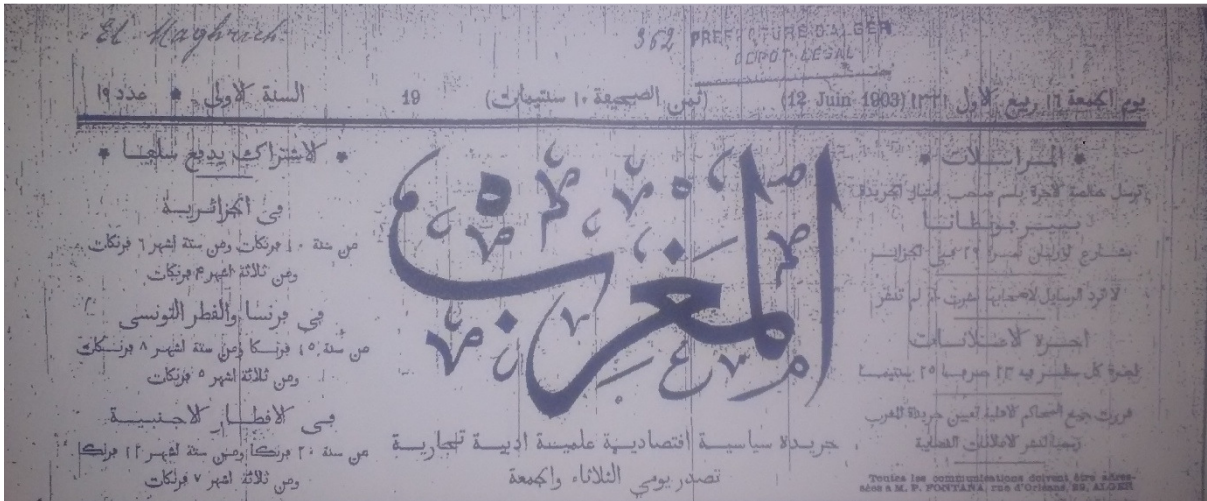 El Maghrieb
362 PREFECTURE D'ALGER
DEPOT LEGAL
يوم الجمعة ١٦ ربيع الاول ١٣٢١ (12 Juin 1903)
(ثمن الصحيفة ١٠ سنتيمات)
19
السنة الاولى * عدد ١٩
* المراسلات *
ترسل خالصة الاجرة باسم صاحب امتياز الجريدة
بيير فونطانا
بشارع اورليان نمرة ٢٩ في الجزائر
لا ترد الرسايل لاصحابها نشرت ام لم تنشر
اجرة الاعلانات
اجرة كل سطر فيه ٣٦ حرفا ٢٥ سنتيما
قررت جميع المحاكم الاهلية تعيين جريدة المغرب
رسمية لنشر الاعلانات القضائية
Toutes les communications doivent être adres-
sées à M. P. FONTANA, rue d'Orléans, 29, ALGER
المغرب
جريدة سياسية اقتصادية علمية ادبية تجارية
تصدر يومي الثلاثاء والجمعة
* الاشتراك يدفع سلفا *
في الجزائرية
من سنة ١٠ فرنكات ومن ستة اشهر ٦ فرنكات
ومن ثلاثة اشهر ٤ فرنكات
في فرنسا والقطر التونسي
من سنة ١٥ فرنكا ومن ستة اشهر ٨ فرنكات
ومن ثلاثة اشهر ٥ فرنكات
في الاقطار الاجنبية
من سنة ٢٠ فرنكا ومن ستة اشهر ١٢ فرنكا
ومن ثلاثة اشهر ٧ فرنكات